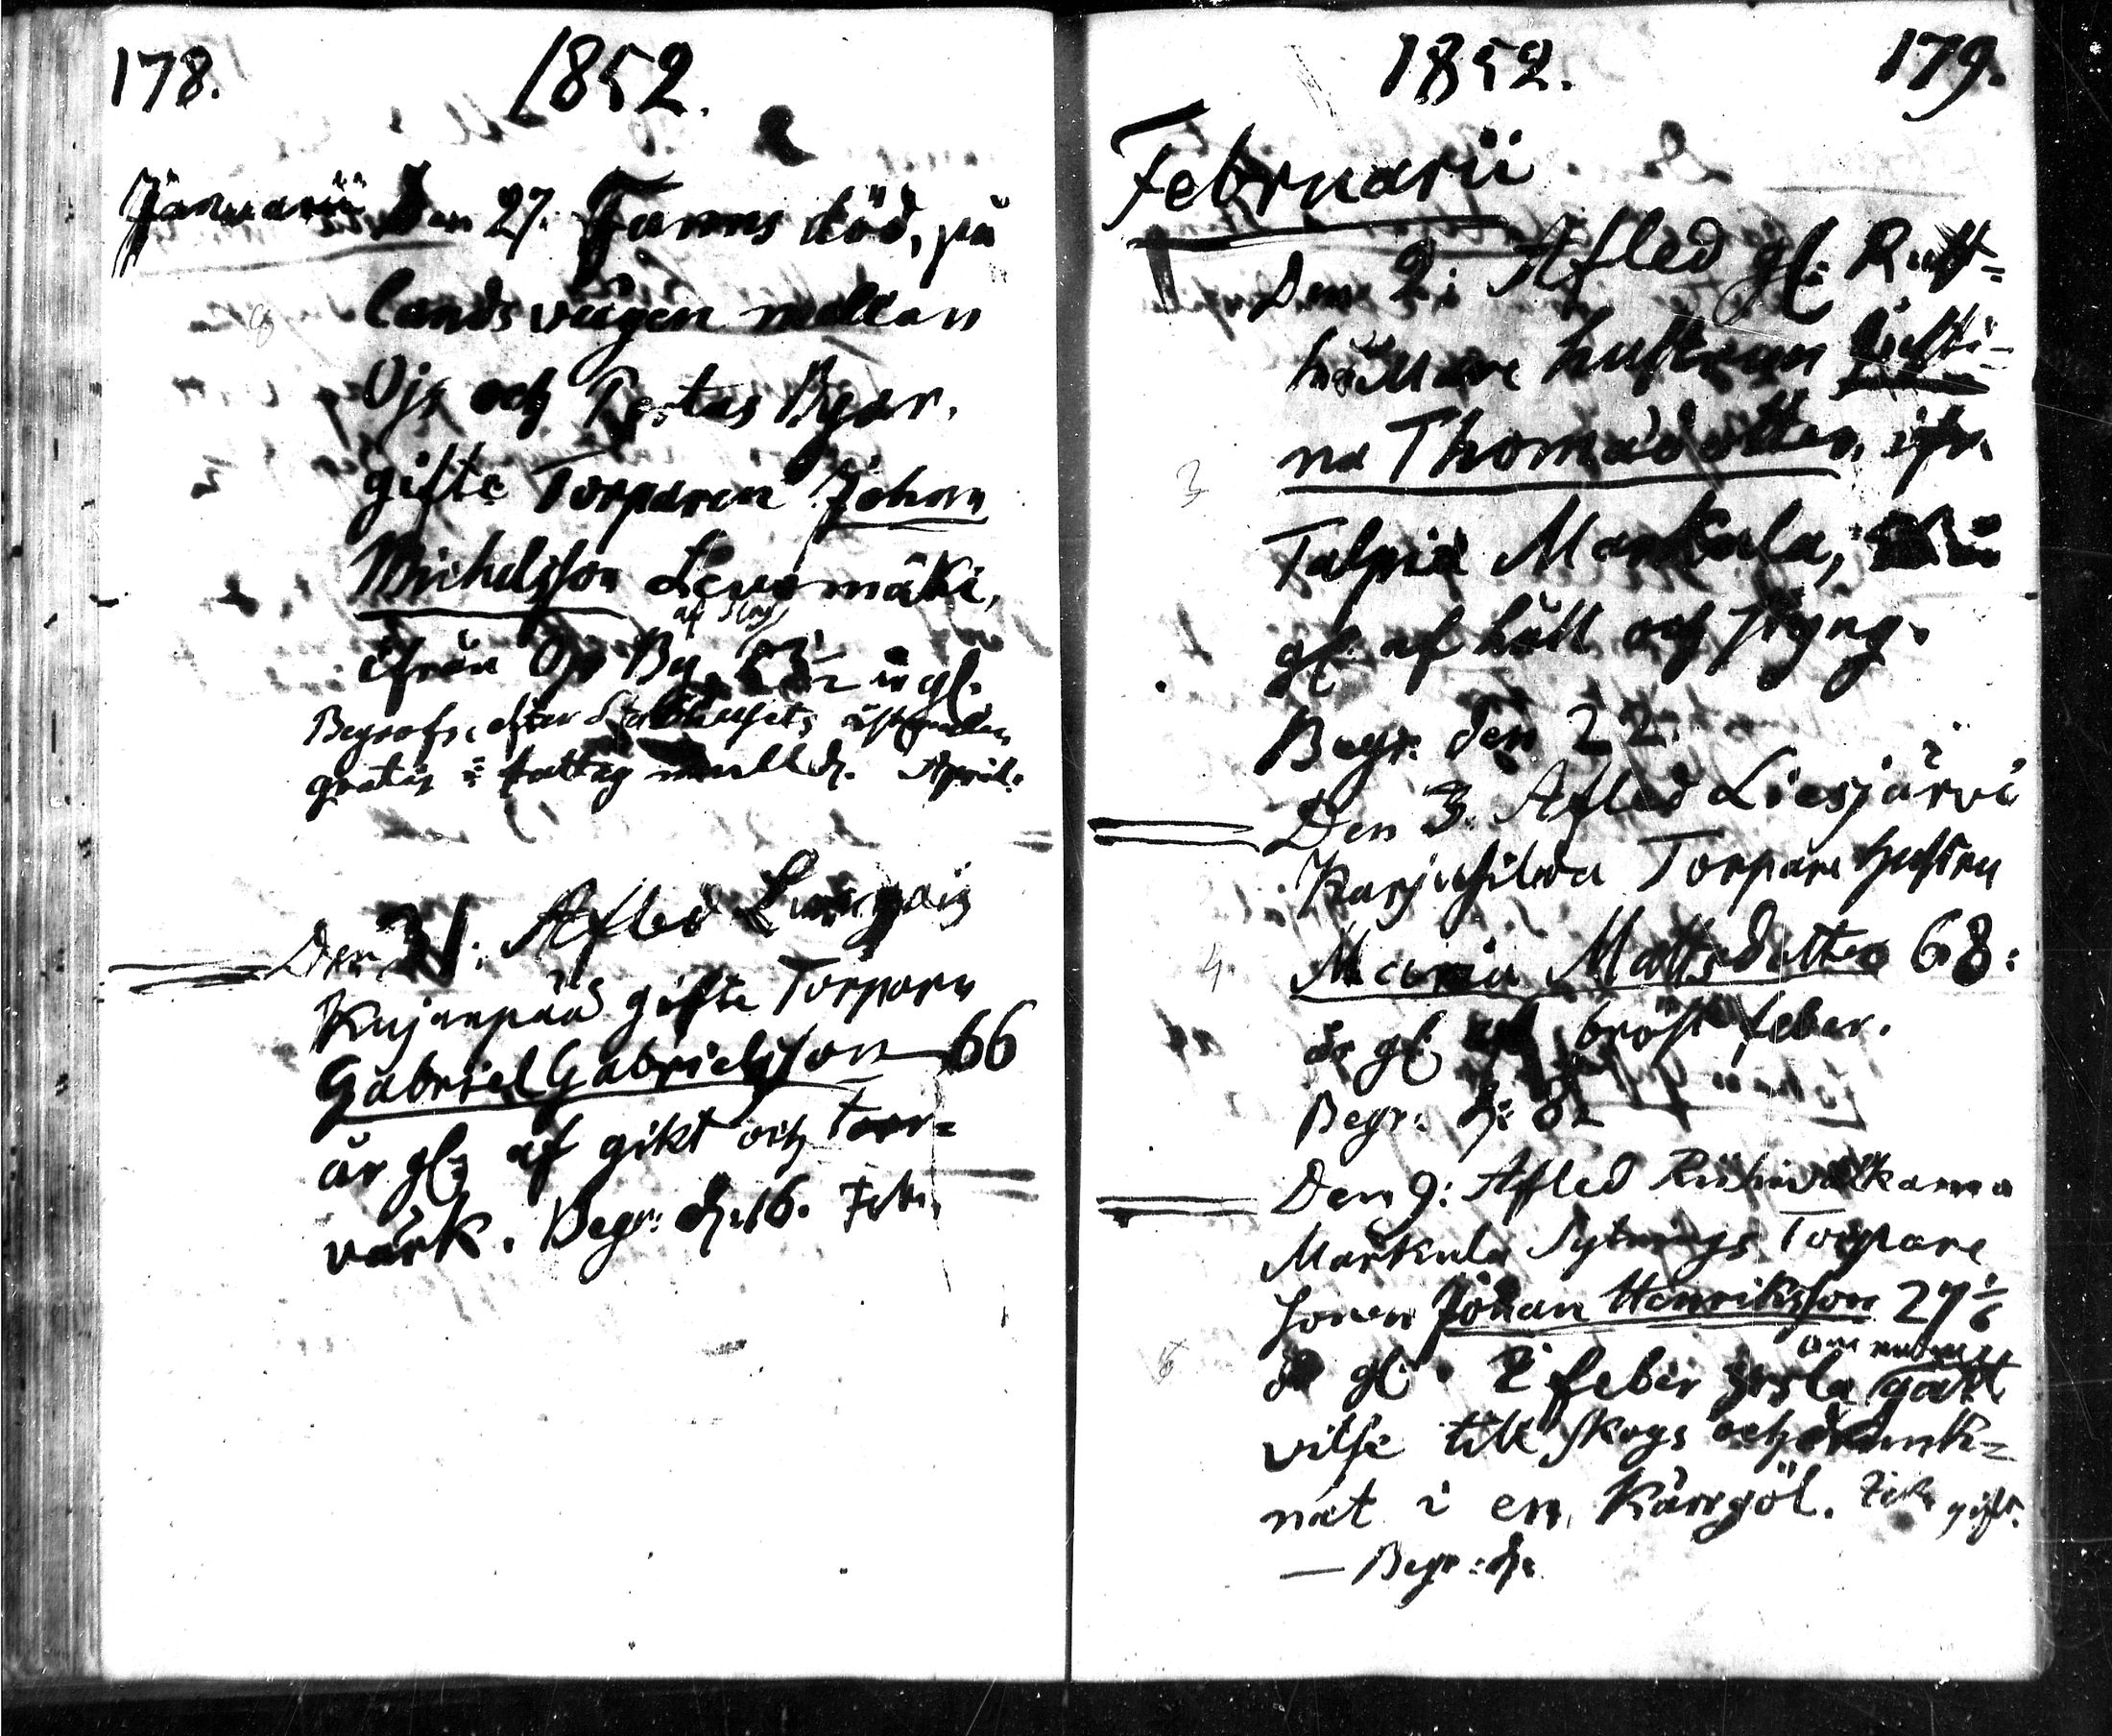 178.
1852.
Januarii Den 27. Fanns död, på
landsvägen mellan
Ojs och Portas Byar,
gifte Torparen Johan
Michelsson Levomäki,
af slag
ifrån Ojs By, år gl.
Begrofs, efter Sterbhusets
gratis i fattig d. April.
Den 31: Afled
Kujanpää gifte Torparn
Gabriel Gabrielsson 66
år gl; af gikt och torr=
värk. Begr: d. 16. Febr.
1852.
179.
Februarii
Den 2: Afled gl: Rust=
hållare hustrun
na Thomasdotter, ifr.
Talpia Markula,
gl. af håll och styng.
Begr. den 22.
Den 3. Afled Liesjärvi
Torpare hustru
Maria Mattsdotter 68:
år gl: af bröstfeber.
Begr: d: 8
Den 9: Afled
Markula Sytnings Torpare
sonen Johan Henriksson 27 1/6
år gl. I feber yrsla gått
vilse till skogs och drunk=
nat i en Kärrgöl. gift.
— Begr: d: